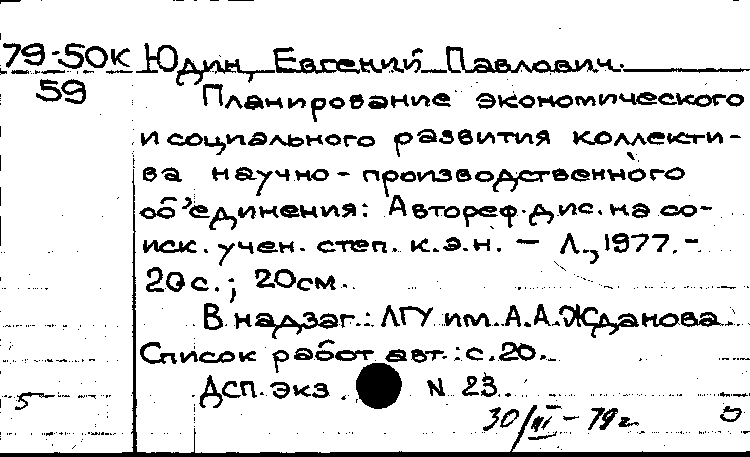 79-50К Юдин, Евгений Павлович.
59 Планирование экономического
и социального развития коллекти-
ва научно-производственного
об'единения: Автореф.дис.на со-
иск. учен. степ. к.э.н. – Л., 1977.-
20с.; 20см.
В надзаг.: ЛГУ им. А.А.Жданова
Список работ авт.: с.20.
Дсп. экз. N 23.
5
30/III – 79г.